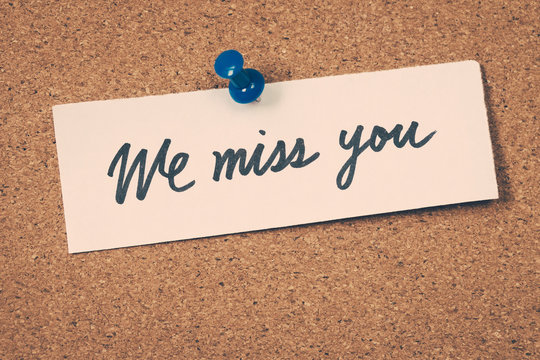 We miss you